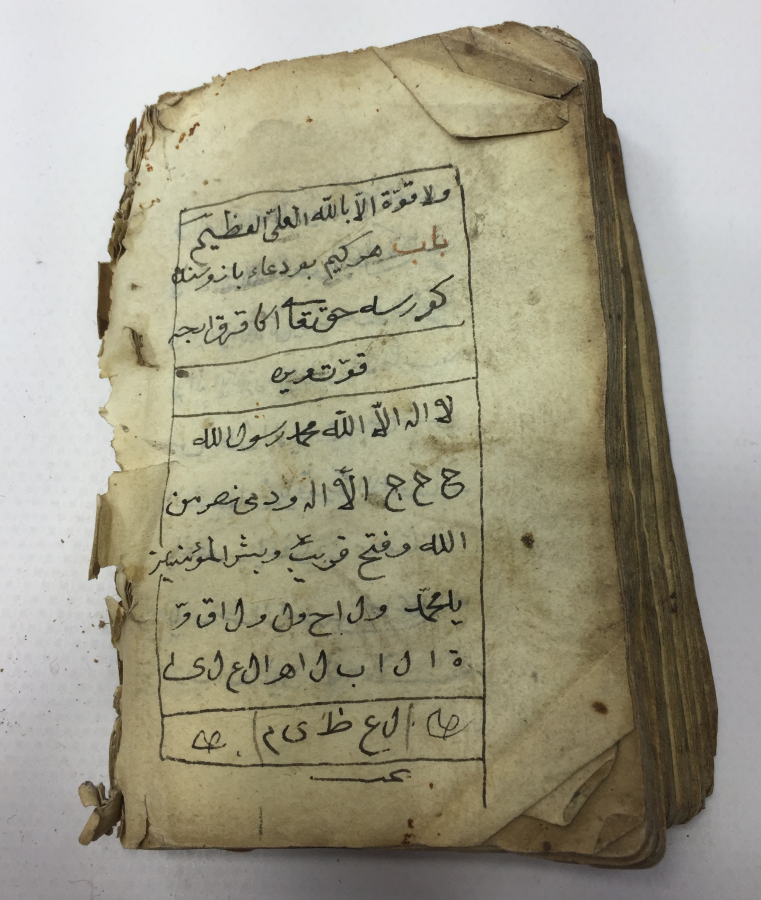 ولا قوّة الّا بالله العلىّ العظيم
باب هر كيم بو دعاء بازوسنه
كورسه حق تعالى اكا قرق ايجه
قوّت ويره
لا اله الّا الله محمد رسول الله
ح ح ح الّا اله ود می نصر من
الله وفتح قريب وبشر المؤمنين
يا محمّد ول اح ول ول اق وّ
ة ا ل ا ب ل ا هـ ا ل ع ل ى
ل ع ظ ى م